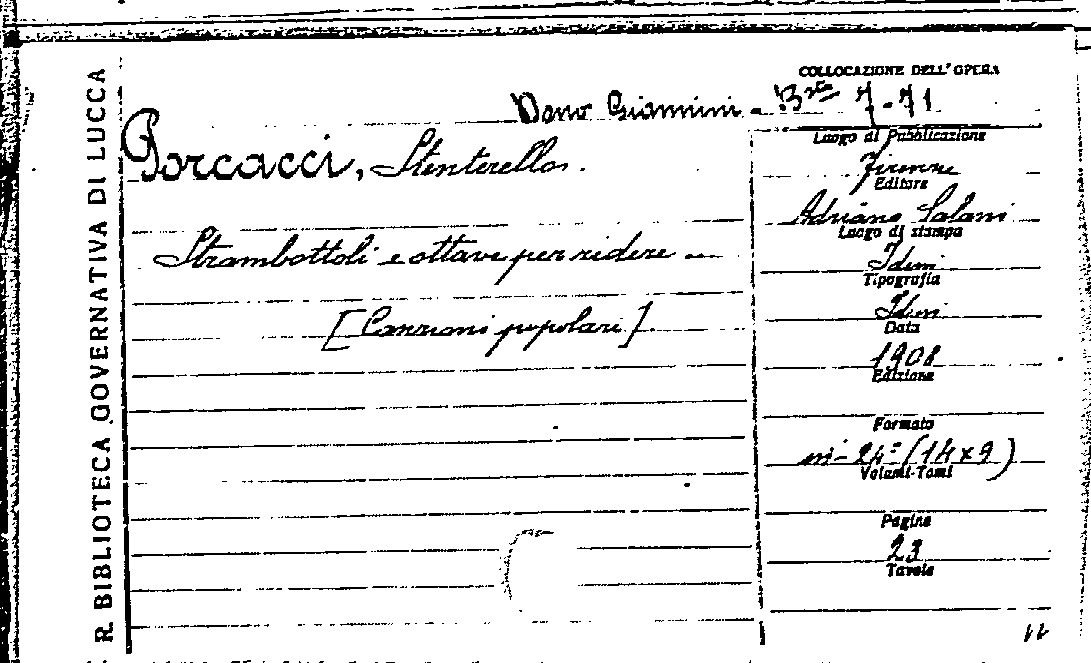 R. BIBLIOTECA GOVERNATIVA DI LUCCA
COLLOCAZIONE DELL'OPERA
Dono Giannini - Bta 7-71
Porcacci, Stenterello.
Strambottoli e ottave per ridere ...
[Canzoni popolari]
Luogo di Pubblicazione
Firenze
Editore
Adriano Salani
Luogo di stampa
Idem
Tipografia
Idem
Data
1908
Edizione
Formato
in-24° (14x9)
Volumi-Tomi
Pagine
23
Tavole